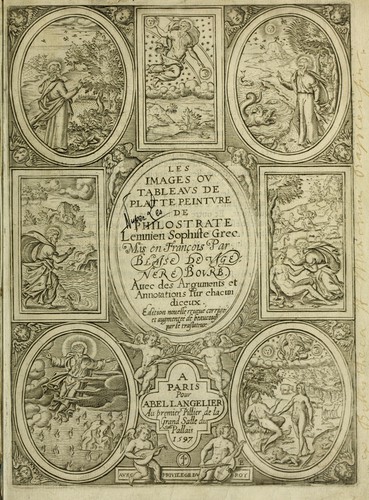 LES
IMAGES OV
TABLEAVS DE
PLATTE PEINTVRE
DE
PHILOSTRATE
Lemnien Sophiste Grec.
Mis en François Par
BLAISE DE VIGE
NERE BOVRB.
Auec des Arguments et
Annotations sur chacun
diceux.
Edition nouuelle reueue corrigee
et augmentee de beaucoup
par le translateur
A
PARIS
Pour
ABEL LANGELIER
Au premier Pillier de la
Grand Salle du
Pallais
1597
AVEC PRIVILEGE DV ROY